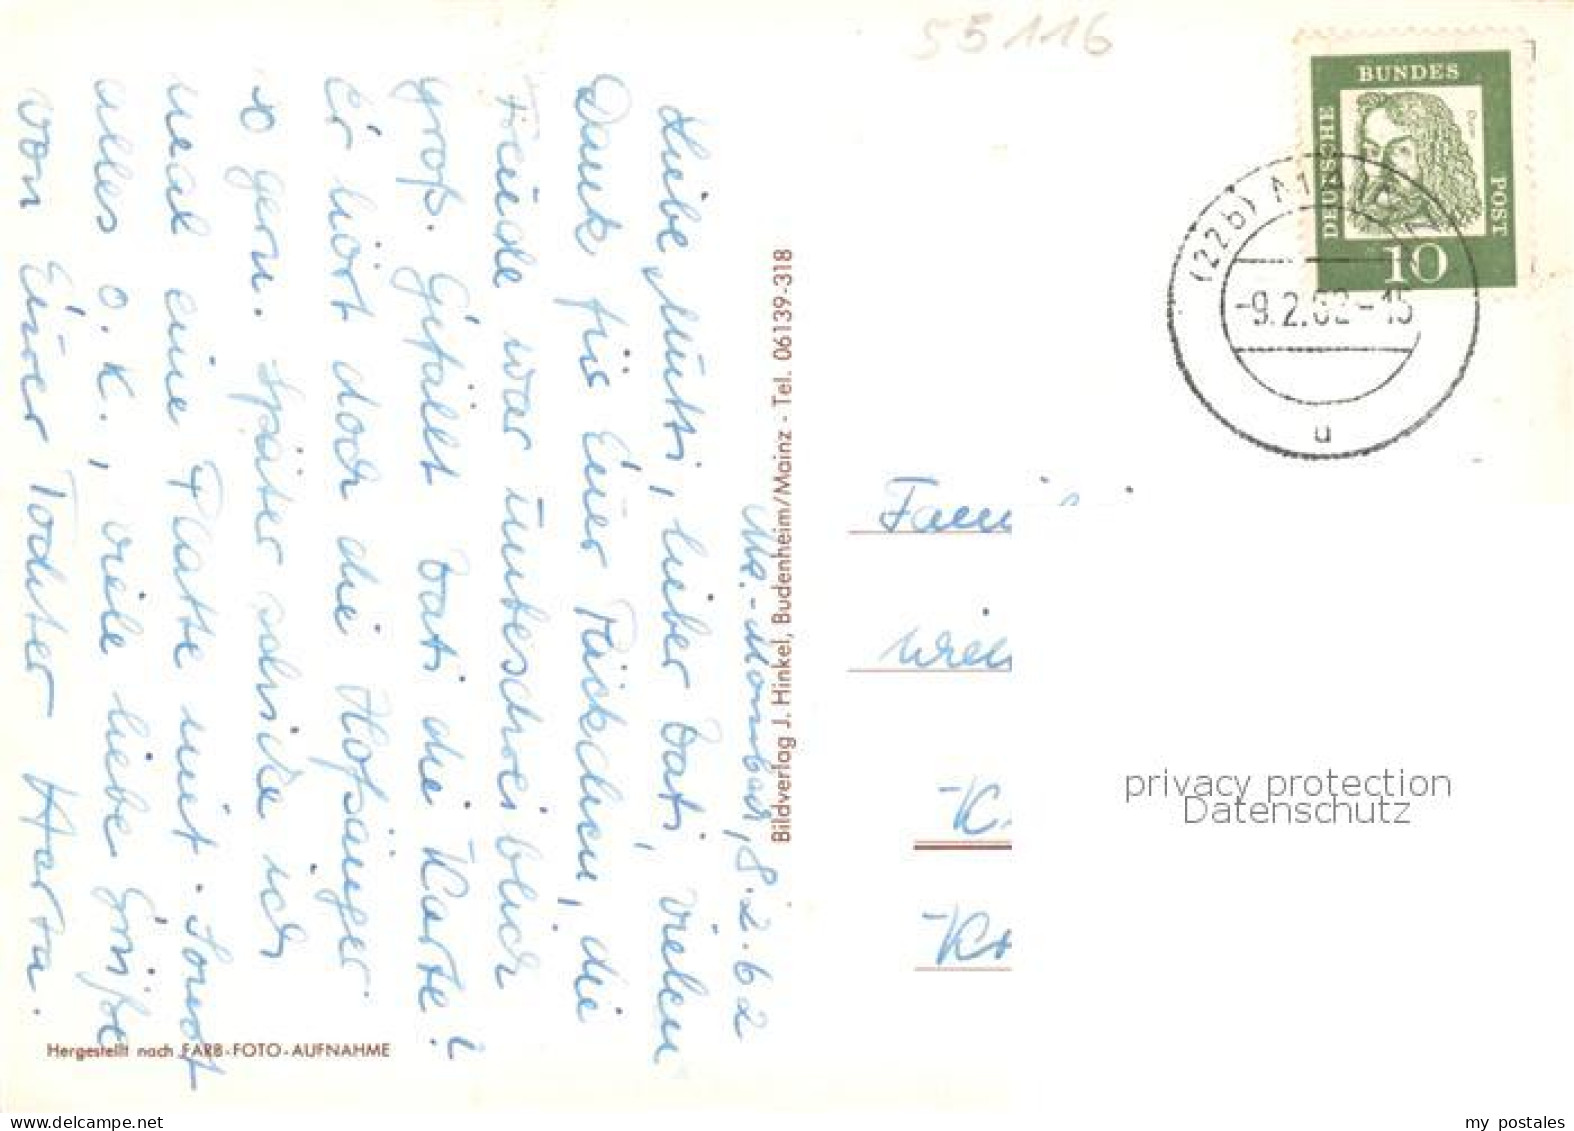 55116
BUNDES
DEUTSCHE
POST
Dürer
10
(22b)
-9.2.62-15
u
Mz.-Mombach, 8.2.62
Liebe Mutti, lieber Vati, vielen
Dank für Euer Päckchen, die
Freude war unbeschreiblich
groß. Gefällt Vati die Karte?
Er hört doch die Hofsänger
so gern. Später schicke ich
mal eine Platte mit. Sonst
alles o.K., viele liebe Grüße
von Eurer Tochter Herta.
Bildverlag J. Hinkel, Budenheim/Mainz - Tel. 06139-318
Hergestellt nach FARB-FOTO-AUFNAHME
privacy protection
Datenschutz
my postales